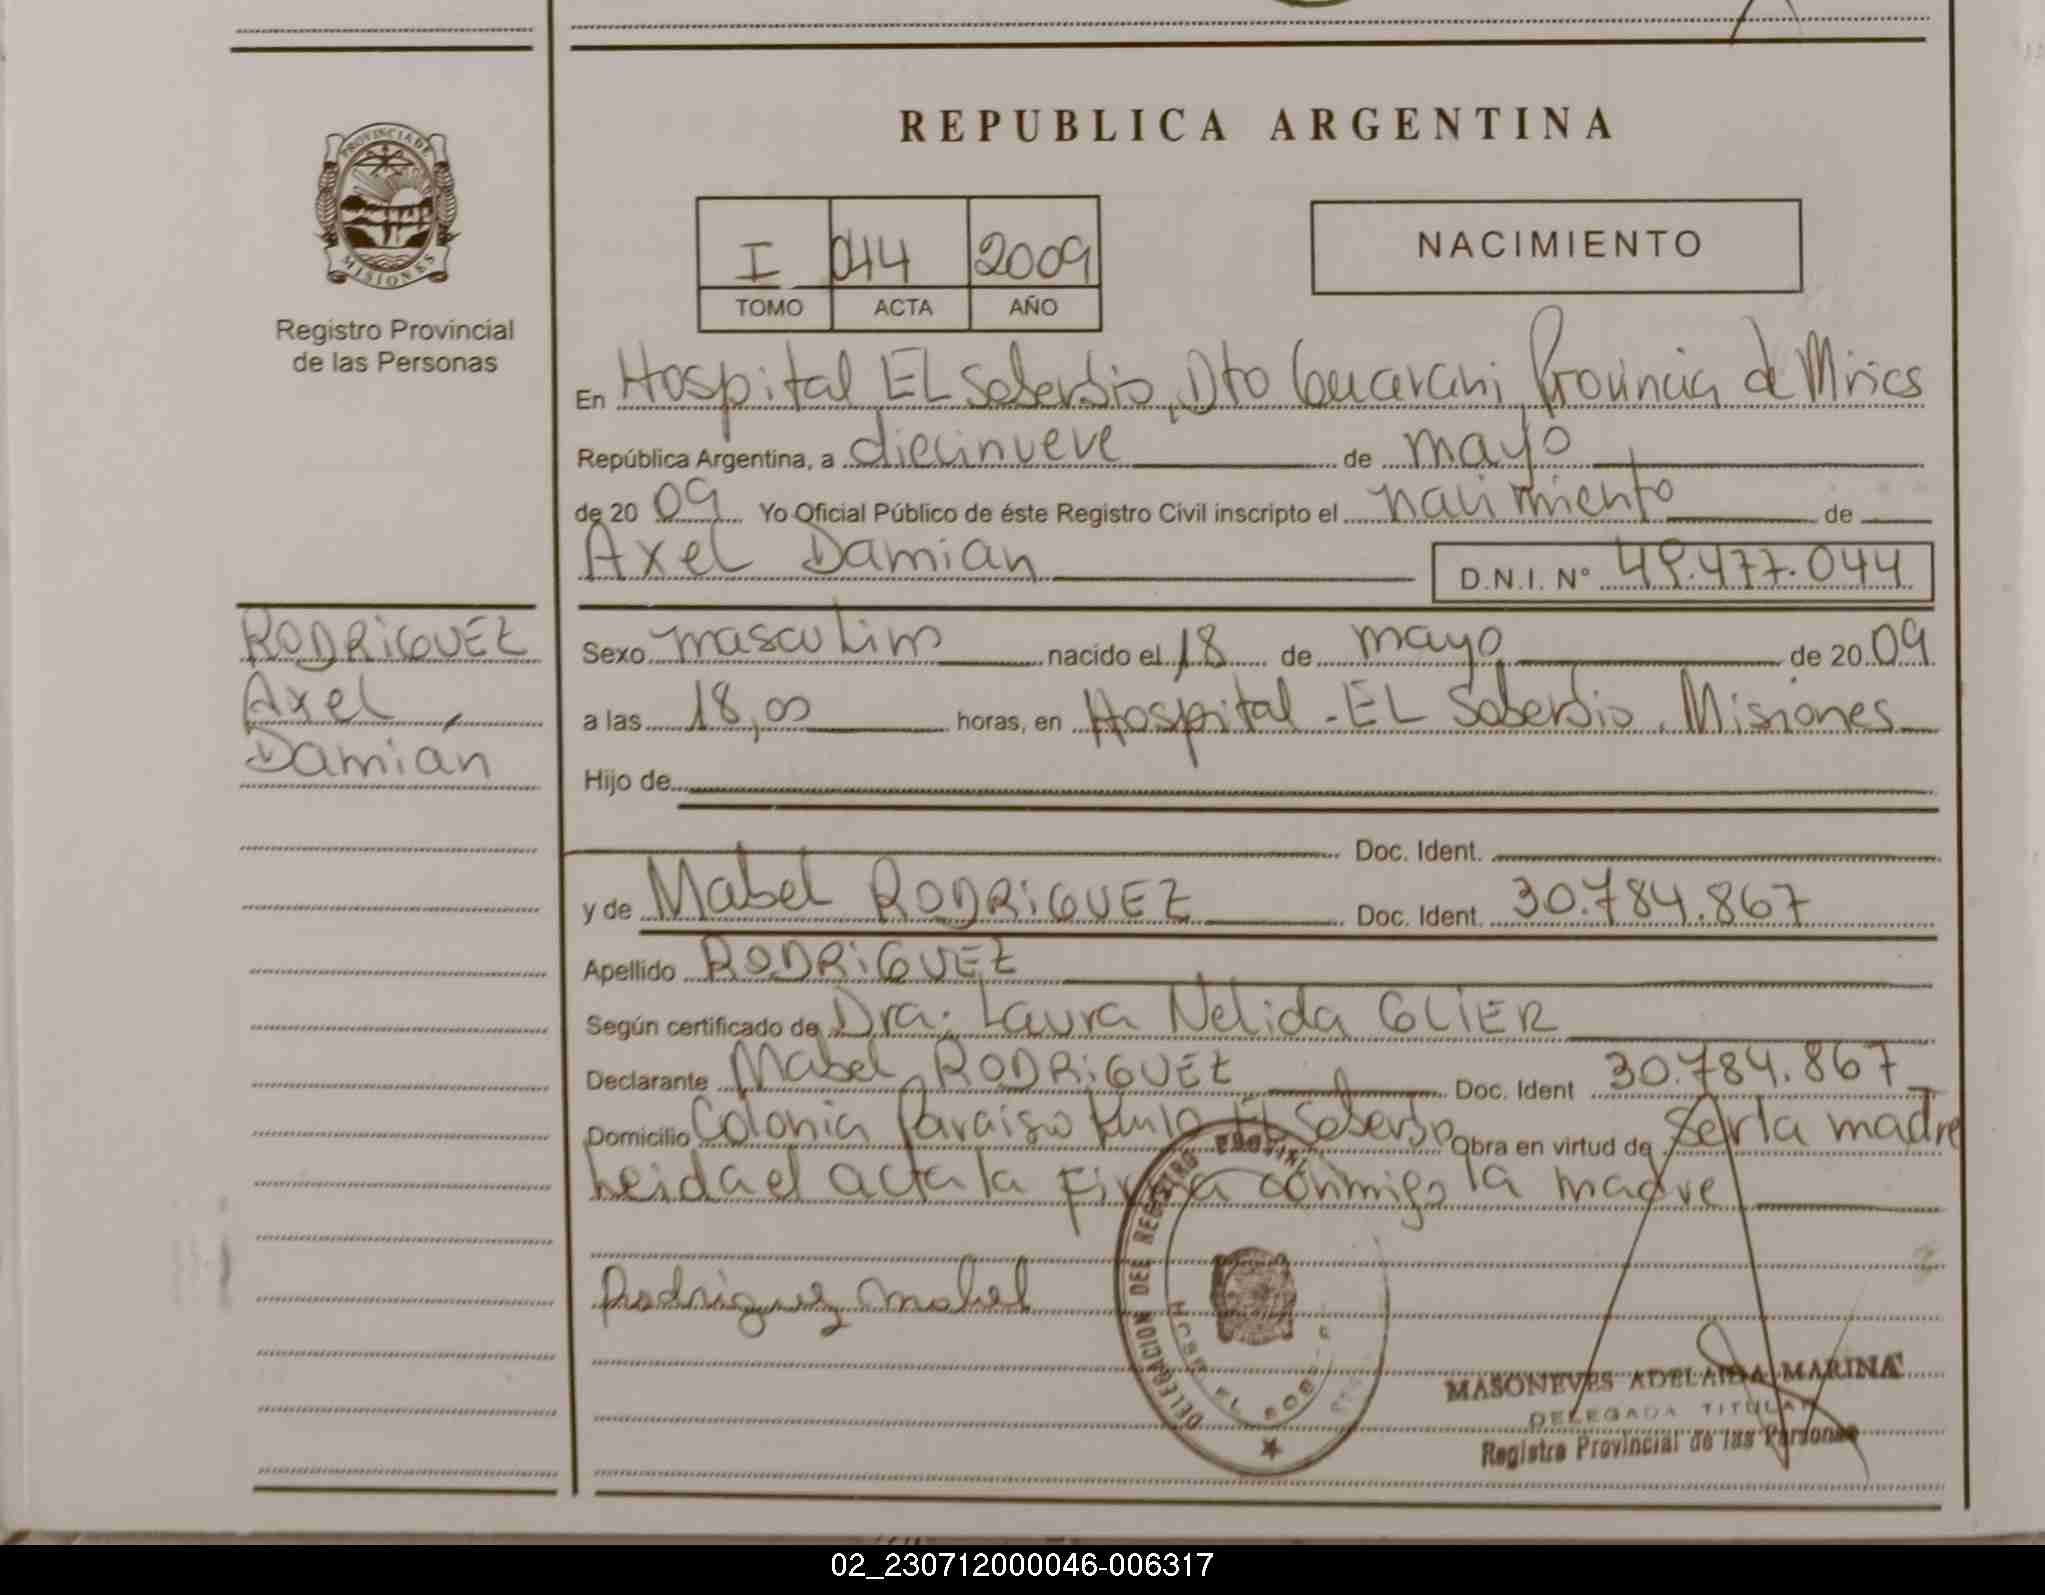 PROVINCIA DE
MISIONES
Registro Provincial
de las Personas
RODRIGUEZ
Axel
Damian
REPUBLICA ARGENTINA
I 044 2009
TOMO ACTA AÑO
NACIMIENTO
En Hospital EL Soberbio, Dto Guarani, Provincia de
República Argentina, a diecinueve de mayo
de 2009 Yo Oficial Público de éste Registro Civil inscripto el nacimiento de
Axel Damian D.N.I. Nº 49.477.044
Sexo masculino nacido el 18 de mayo de 2009
a las 18,00 horas, en Hospital - EL Soberbio, Misiones
Hijo de
Doc. Ident.
y de Mabel RODRIGUEZ Doc. Ident. 30.784.867
Apellido RODRIGUEZ
Según certificado de Dra. Laura Nelida GLIER
Declarante Mabel RODRIGUEZ Doc. Ident 30.784.867
Domicilio Colonia Paraiso El Soberbio Obra en virtud de ser la madre
leida el acta la firma conmigo la madre
Rodriguez Mabel
DELEGACION DEL REGISTRO
EL
MASONEVES ADELAIDA MARINA
DELEGADA TITULAR
Registro Provincial de las Personas
02_230712000046-006317